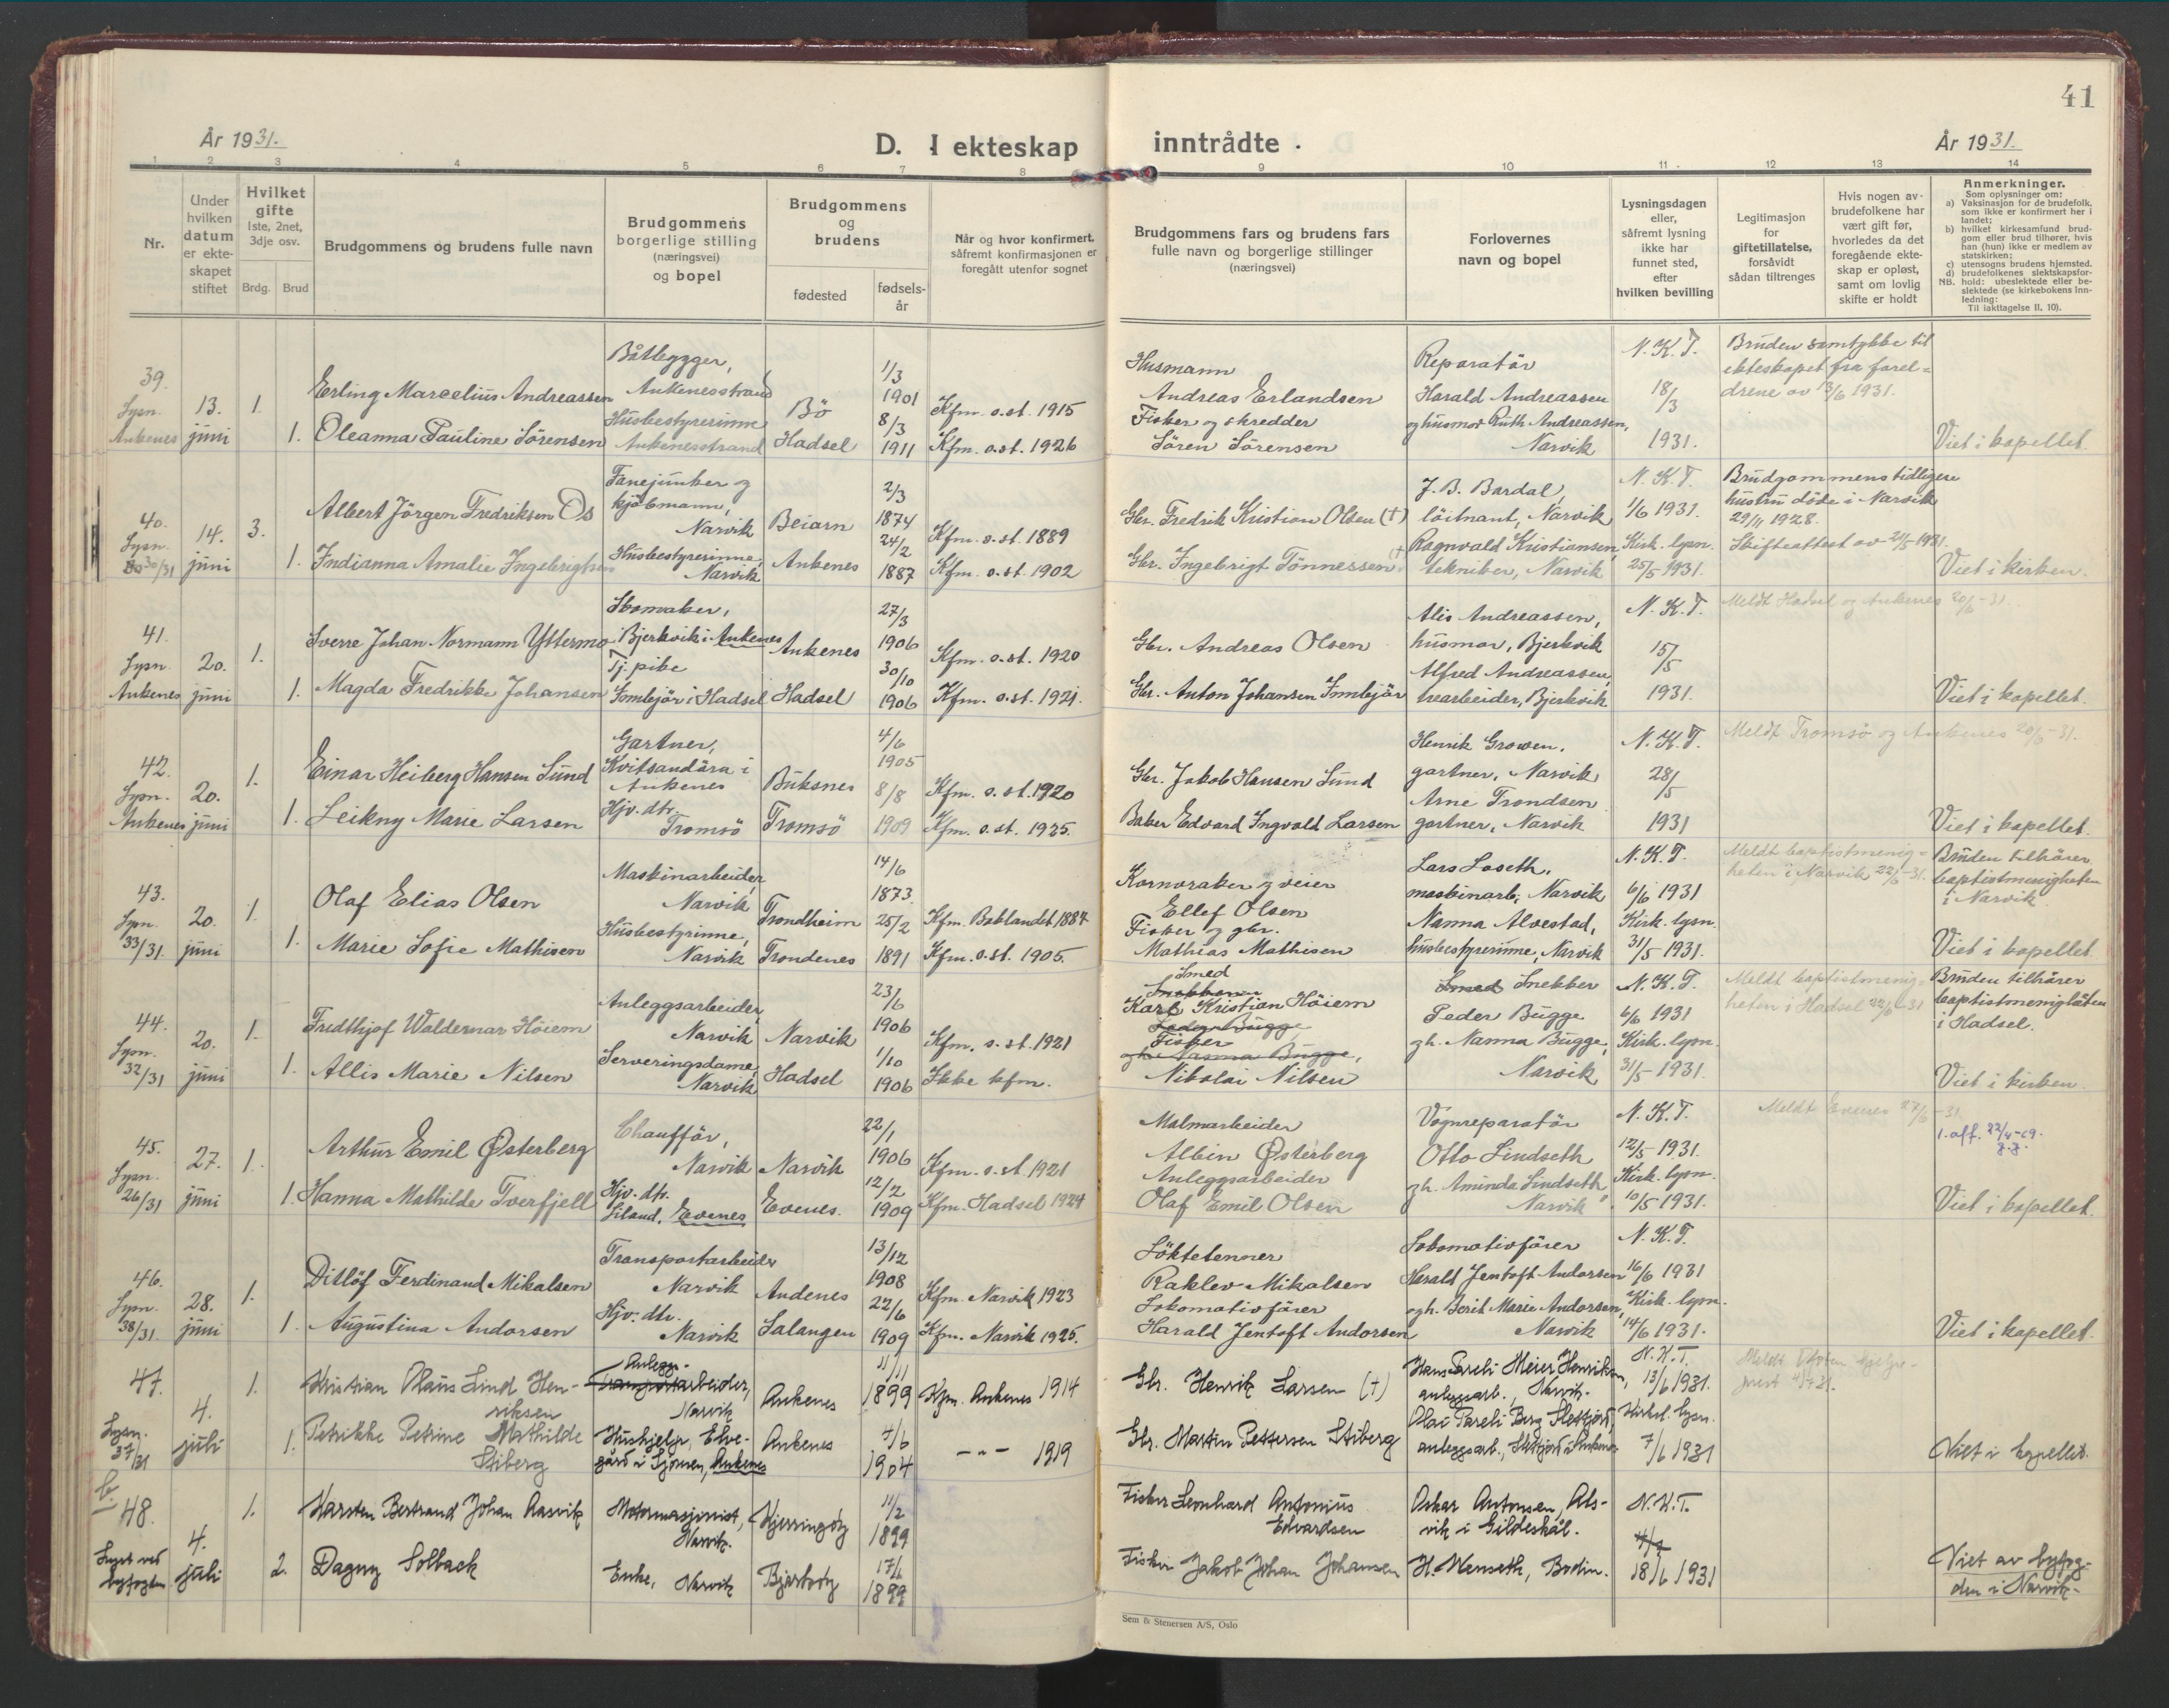 41
År 1931.
D. I ekteskap inntrådte.
År 1931.
1 2 3 4 5 6 7 8 9 10 11 12 13 14
Nr.
Under hvilken datum er ekteskapet stiftet
Hvilket gifte
1ste, 2net, 3dje osv.
Brdg. Brud
Brudgommens og brudens fulle navn
Brudgommens borgerlige stilling (næringsvei) og bopel
Brudgommens og brudens
fødested
fødselsår
Når og hvor konfirmert, såfremt konfirmasjonen er foregått utenfor sognet
Brudgommens fars og brudens fars fulle navn og borgerlige stillinger (næringsvei)
Forlovernes navn og bopel
Lysningsdagen eller, såfremt lysning ikke har funnet sted, efter hvilken bevilling
Legitimasjon for giftetillatelse, forsåvidt sådan tiltrenges
Hvis nogen av brudefolkene har vært gift før, hvorledes da det foregående ekteskap er opløst, samt om lovlig skifte er holdt
Anmerkninger.
Som oplysninger om:
a) Vaksinasjon for de brudefolk, som ikke er konfirmert her i landet;
b) hvilket kirkesamfund brudgom eller brud tilhører, hvis han (hun) ikke er medlem av statskirken;
c) utensogns brudens hjemsted.
d) brudefolkenes slektskapsforhold: ubeslektede eller beslektede (se kirkebokens Innledning:
NB.
Til iakttagelse II. 10).
39. Lysn. Ankenes
13. juni
1. Erling Marcelius Andreassen
Båtbygger, Ankenesstrand
1/3 1901
Kfm. o.st. 1915
Husmann Andreas Erlandsen
1. Oleanna Pauline Sörensen
Husbestyrerinne Ankenesstrand
Bö
Hadsel
8/3 1911
Kfm. o.st. 1926
Fisker og skredder Sören Sörensen
Reparatör Harald Andreassen og husmor Ruth Andreassen, Narvik
N.K.T. 18/3 1931.
Bruden samtykke til ekteskapet fra foreldrene av 13/6 1931.
Viet i kapellet.
40. Lysn. 30/31
14. juni
3. Albert Jörgen Fredriksen Os
Fanejunker og kjöbmann, Narvik
Beiarn
2/3 1874
Kfm. o.st. 1889
Gbr. Fredrik Kristian Olsen (†)
1. Indianna Amalie Ingebrigtsen
Husbestyrerinne, Narvik
Ankenes
24/2 1887
Kfm. o.st. 1902
Gbr. Ingebrigt Tönnessen (†
J. B. Bardal, löitnant, Narvik
Ragnvald Kristiansen, tekniker, Narvik
N.K.T. 1/6 1931.
Kirk. lysn. 25/5 1931.
Brudgommens tidligere hustru döde i Narvik 29/11 1928.
Skifteattest av 21/5 1931.
Viet i kirken.
41. Lysn. Ankenes
20. juni
1. Sverre Johan Normann Yttermo
Skomaker, Bjerkvik i Ankenes
Ankenes
27/3 1906
Kfm. o.st. 1920
Gbr. Andreas Olsen
1. Magda Fredrikke Johansen
Tj. pike
Hadsel
30/10 1906
Kfm. o.st. 1921.
Alis Andreassen, husmor, Bjerkvik
Alfred Andreassen, trearbeider, Bjerkvik
N.K.T. 15/5 1931.
Meldt Hadsel og Ankenes 20/6-31.
Viet i kapellet.
42. Lysn. Ankenes
20. juni
1. Einar Heiberg Hansen Sund
Gartner, Kvitsandöra i Ankenes
Buksnes
4/6 1905
Kfm. o.st. 1920
Gbr. Jakob Hansen Sund
1. Leikny Marie Larsen
Hjv. dtr. Tromsö
Tromsö
8/8 1909
Kfm. o.st. 1925.
Baker Edvard Ingvald Larsen
Henrik Growen, gartner, Narvik
Arne Trondsen gartner, Narvik
N.K.T. 28/5 1931
Meldt Tromsö og Ankenes 20/6-31.
Viet i kapellet.
43. Lysn. 33/31
20. juni
1. Olaf Elias Olsen
Maskinarbeider, Narvik
Trondheim
14/6 1873.
Ellef Olsen
1. Marie Sofie Mathisen
Husbestyrinne, Narvik
Trondenes
25/2 1891
Kfm. o.st. 1905.
Fisker og gbr. Mathias Mathisen
Lars Loseth, maskinarb., Narvik
Nanna Alvestad, husbestyrerinne, Narvik
N.K.T. 6/6 1931
Kirk. lysn. 31/5 1931.
Meldt baptistmenigheten i Narvik 22/6-31.
Bruden tilhörer baptistmenigheten i Narvik
Viet i kapellet
44. Lysn. 32/31
20. juni
1. Fridthjof Waldemar Höiem
Anleggsarbeider, Narvik
Narvik
23/6 1906
Kfm. o.st. 1921
Smed Karl Kristian Höiem
1. Allis Marie Nilsen
Serveringsdame, Narvik
Hadsel
1/10 1906
Ikke kfm.
Fisker Nikolai Nilsen
Snekker Peder Bugge gh. Nanna Bugge, Narvik
N.K.T. 6/6 1931
Kirk. lysn. 31/5 1931.
Meldt baptistmenigheten i Hadsel 22/6-31
Bruden tilhörer baptistmenigheten i Hadsel.
Viet i kirken.
45. Lysn. 26/31
27. juni
1. Arthur Emil Østerberg
Chaufför, Narvik
Narvik
22/1 1906
Kfm. o.st. 1921
Malmarbeider Albin Østerberg
1. Hanna Mathilde Tverfjell
Hjv. dtr. Liland, Evenes
Evenes.
12/2 1909
Kfm. Hadsel 1924
Anleggsarbeider Olaf Emil Olsen
Vognreparatör Otto Lindseth gh. Aminda Lindseth Narvik
N.K.T. 12/5 1931.
Kirk. lysn. 10/5 1931.
Meldt Evenes 27/6-31.
Viet i kapellet.
46. Lysn. 38/31.
28. juni
1. Ditlöf Ferdinand Mikalsen
Transportarbeider Narvik
Andenes
13/12 1908
Kfm. Narvik 1923
Raklev Mikalsen
1. Augustina Andorsen
Hjv. dtr. Narvik
Salangen
22/6 1909
Kfm. Narvik 1925.
Lokomotivförer Harald Jentoft Andorsen
Lokomotivförer Harald Jentoft Andorsen ogh. Berit Marie Andorsen, Narvik
N.K.T. 16/6 1931
Kirk. lysn. 14/6 1931.
Viet i kapellet.
47. Lysn. 37/31
4. juli
1. Kristian Olaus Lind Henriksen
Anleggarbeider, Narvik
Ankenes
11/11 1899
Kfm. Ankenes 1914
Gbr. Henrik Larsen (†)
1. Petrikke Petrine Mathilde Stiberg
Hushjelp, Elvegård i Sjomen, Ankenes
Ankenes
4/6 1904
-"- 1919
Gbr. Martin Pettersen Stiberg
Hans Pareli Meier Henriksen, anleggsarb., Narvik.
Olai Pareli Berg
N.K.T. 13/6 1931.
Kirkel. lysn. 7/6 1931
Viet i kapellet.
b. 48.
Lyst ved byfogden
4. juli
1. Karsten Bertrand Johan Aasvik
Narvik.
Kjerringöy
11/2 1899
Fisker Leonhard Antonius Edvardsen
2. Dagny Solback
Enke, Narvik
17/1 1899
Fisker Jakob Johan Johansen
Oskar Antonsen, Alsvik i Gildeskål.
N.K.T.
18/6 1931
Viet av byfogden i Narvik.
Sem & Stenersen A/S, Oslo